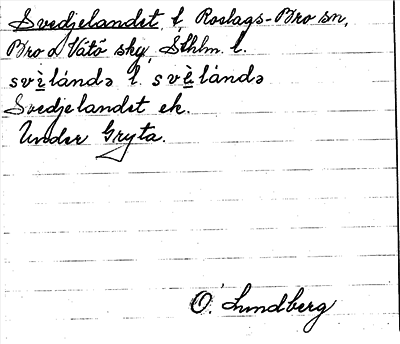 Svedjelandet, t, Roslags-Bro sn,
Bro o Vätö sky, Sthlm. l.
svìlándə l. svèlándə
Svedjelandet ek.
Under Gryta.
O. Lundberg